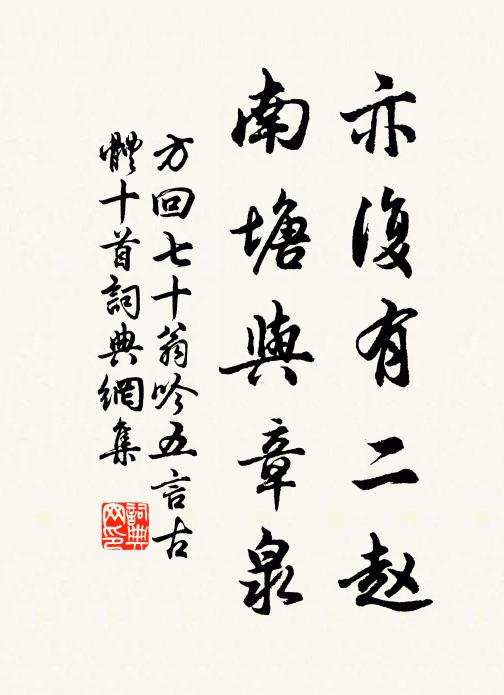 亦復有二赵
南塘與章泉
方回七十翁吟五言古
體十首詞典網集
詞典
网印